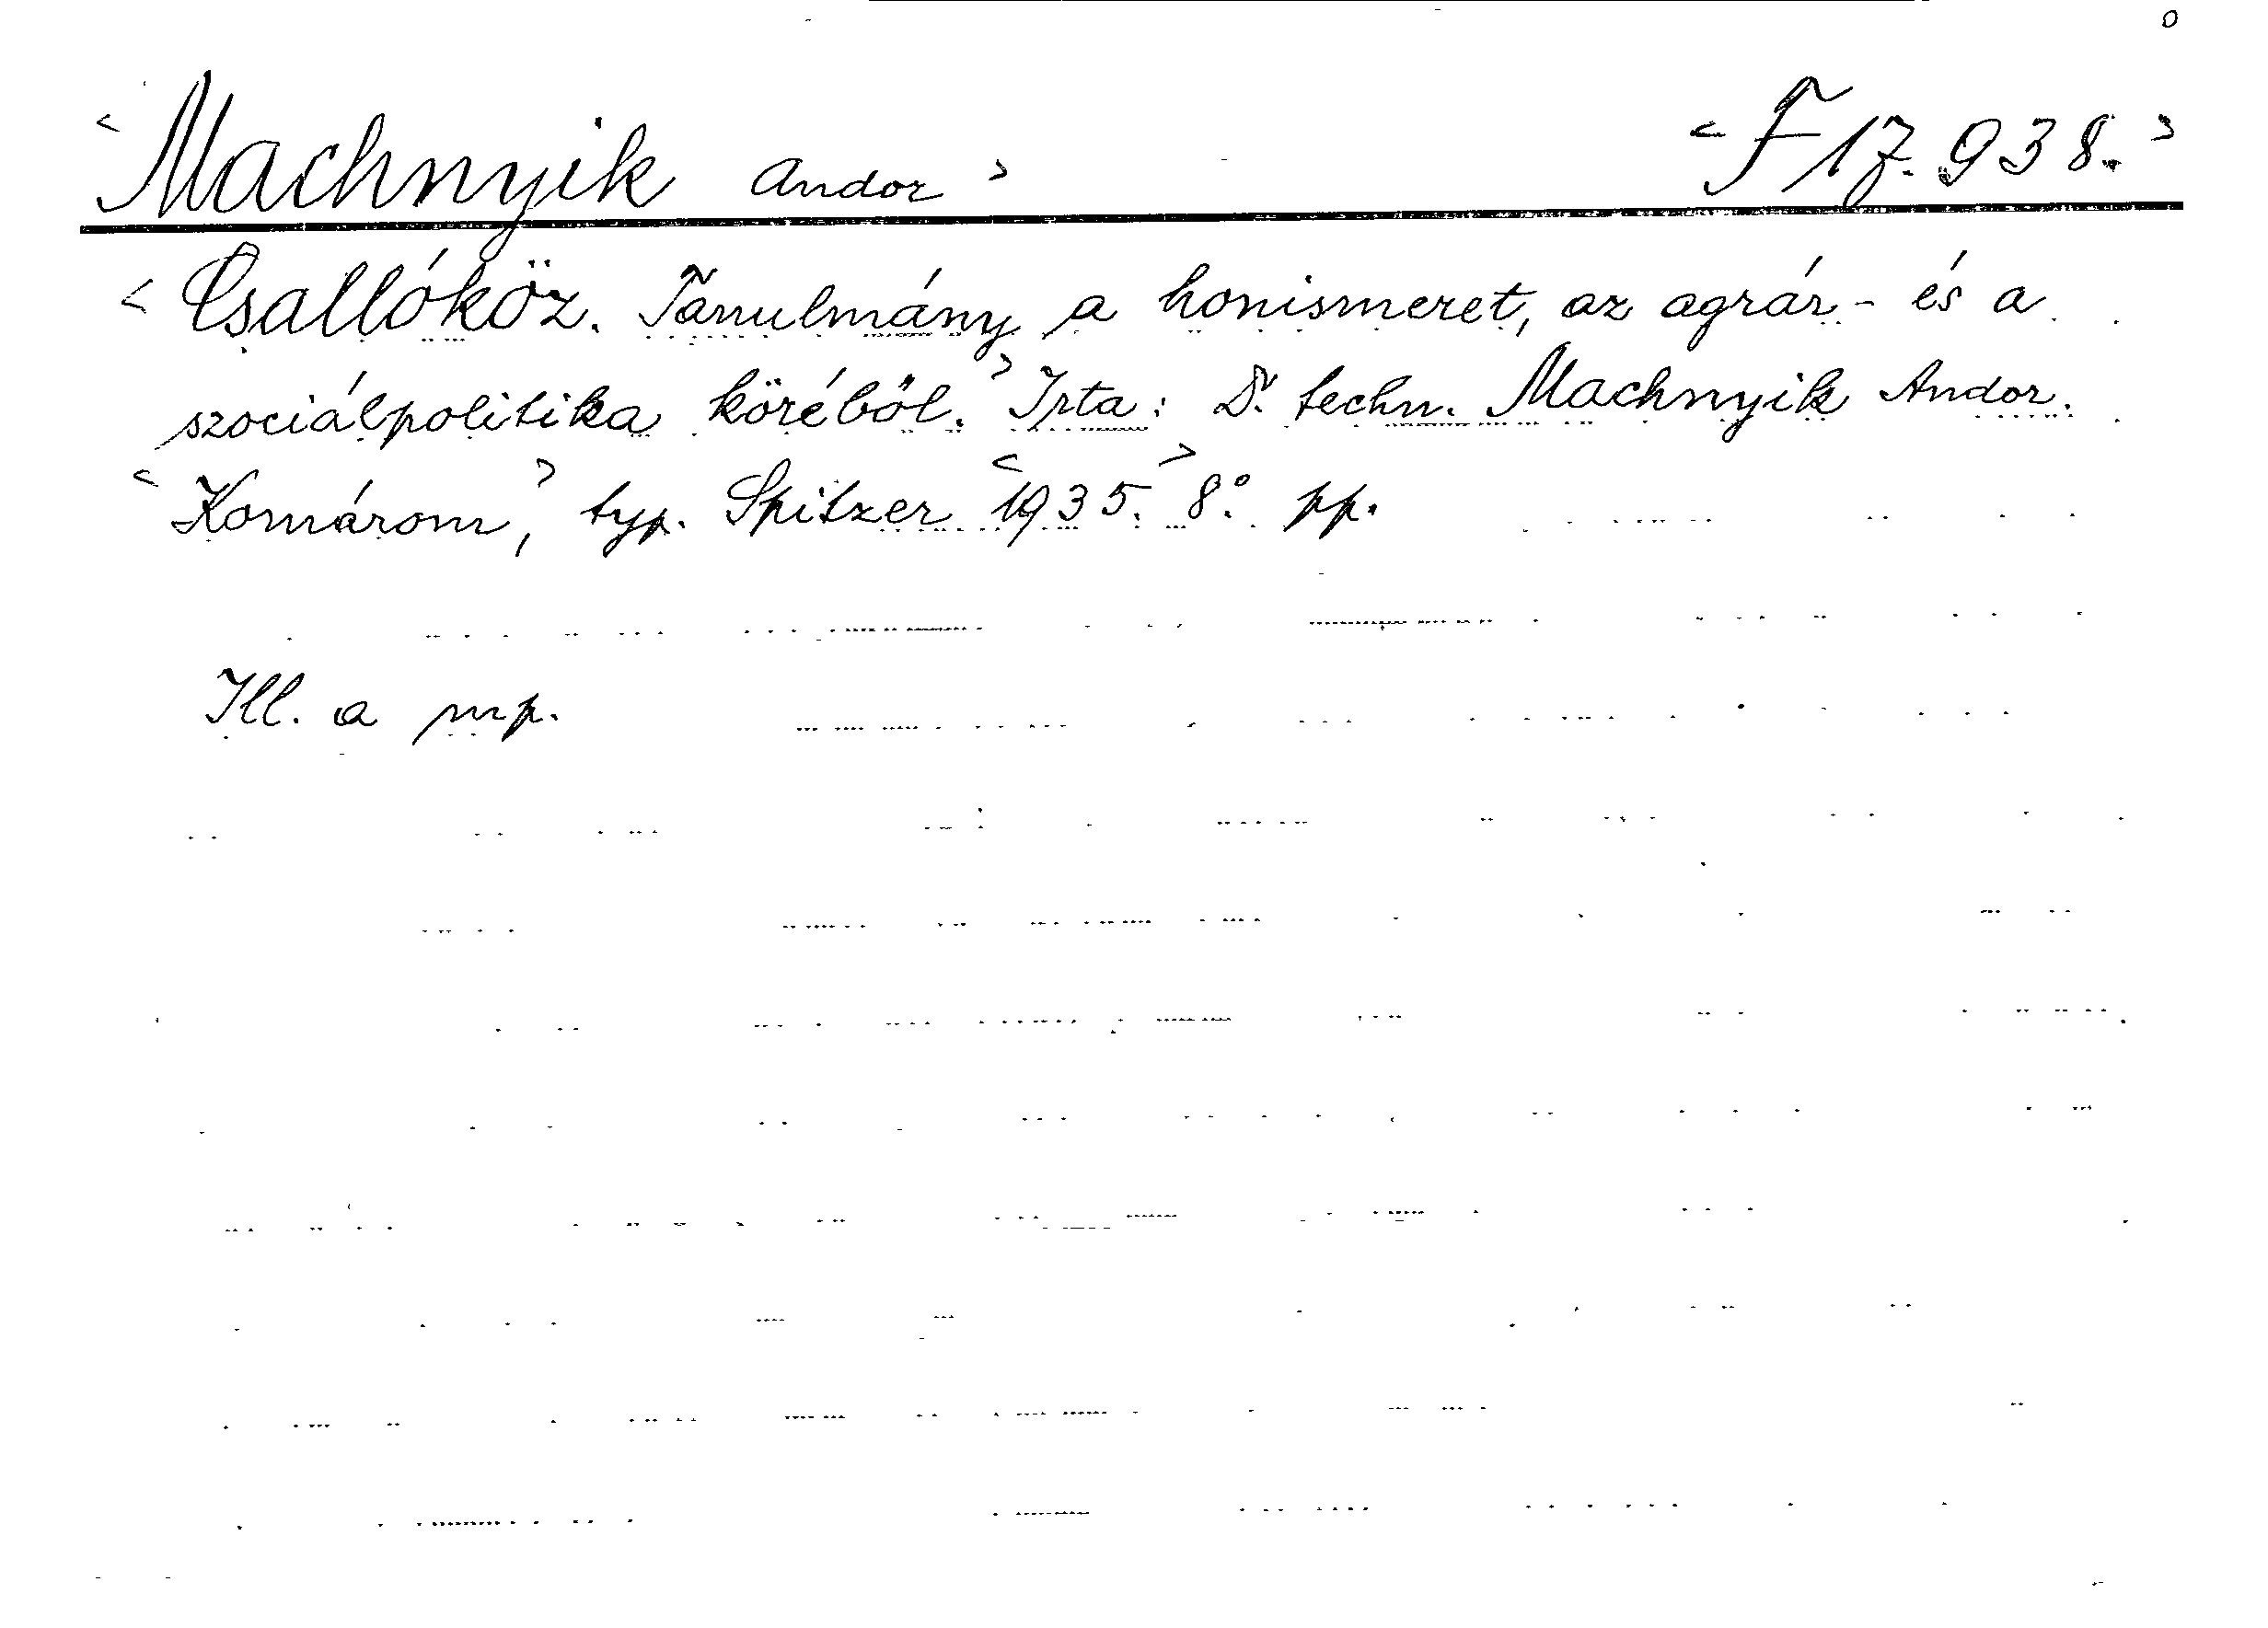 <Machnyik Andor> <F 17.938.>
<Csallóköz. Tanulmány a honismeret, az agrár- és a
szociálpolitika köréből.> Irta: Dr. techn. Machnyik Andor.
<Komárom,> typ. Spitzer <1935.> 8.° pp.
Ill. a mp.